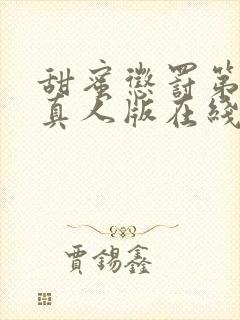 甜蜜懲罰第
真人版在綫
賈錫鑫